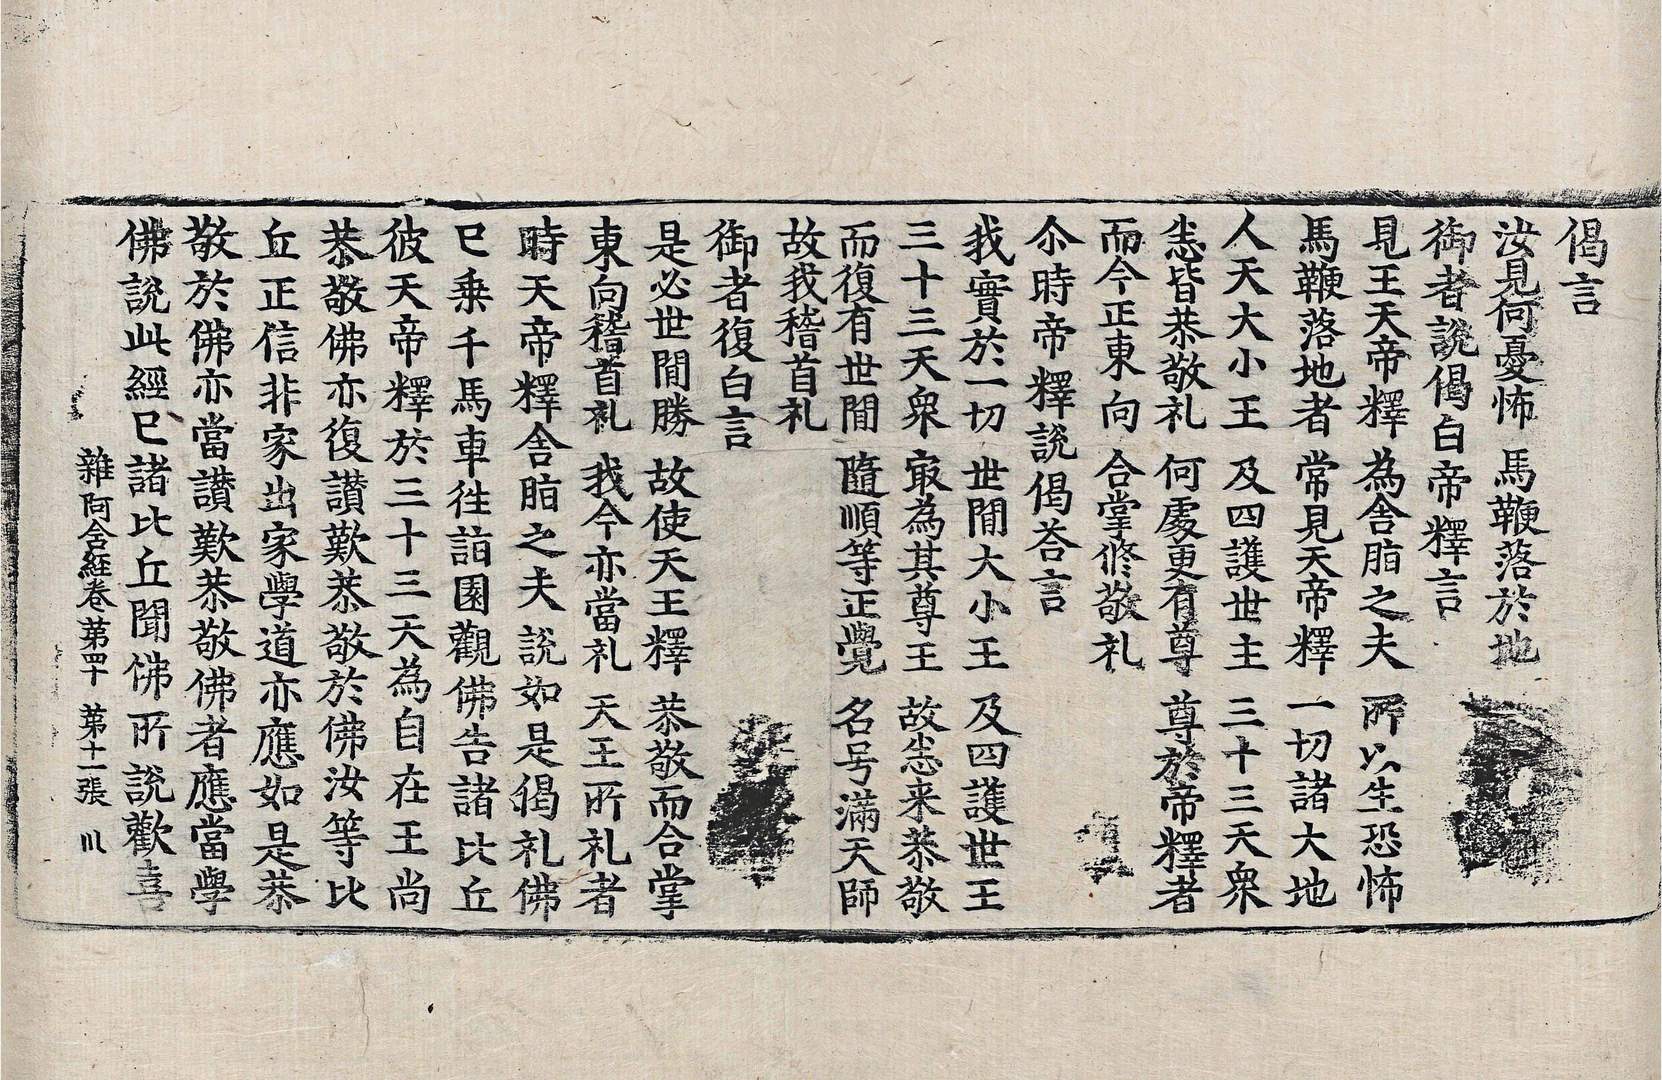 偈言
汝見何憂怖 馬鞭落於地
御者說偈白帝釋言
見王天帝釋 為舍脂之夫 所以生恐怖
馬鞭落地者 常見天帝釋 一切諸大地
人天大小王 及四護世主 三十三天衆
悉皆恭敬礼 何處更有尊 尊於帝釋者
而今正東向 合掌修敬礼
尒時帝釋說偈荅言
我實於一切 世閒大小王 及四護世王
三十三天衆 㝡為其尊王 故悉来恭敬
而復有世閒 隨順等正覺 名号滿天師
故我稽首礼
御者復白言
是必世閒勝 故使天王釋 恭敬而合掌
東向稽首礼 我今亦當礼 天王所礼者
時天帝釋舍脂之夫說如是偈礼佛
已乘千馬車徃詣園觀佛告諸比丘
彼天帝釋於三十三天為自在王尚
恭敬佛亦復讃歎恭敬於佛汝等比
丘正信非家出家學道亦應如是恭
敬於佛亦當讃歎恭敬佛者應當學
佛說此經已諸比丘聞佛所說歡喜
雜阿含經卷第四十 第十一張 川